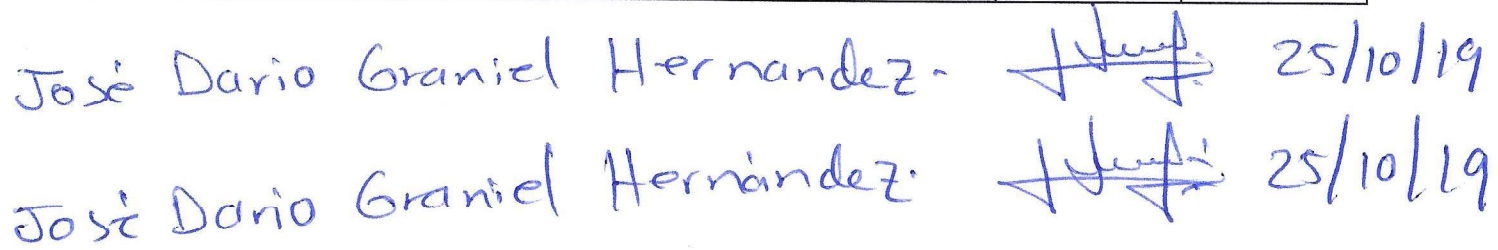 José Dario Graniel Hernandez. 25/10/19
José Dario Graniel Hernández. 25/10/19